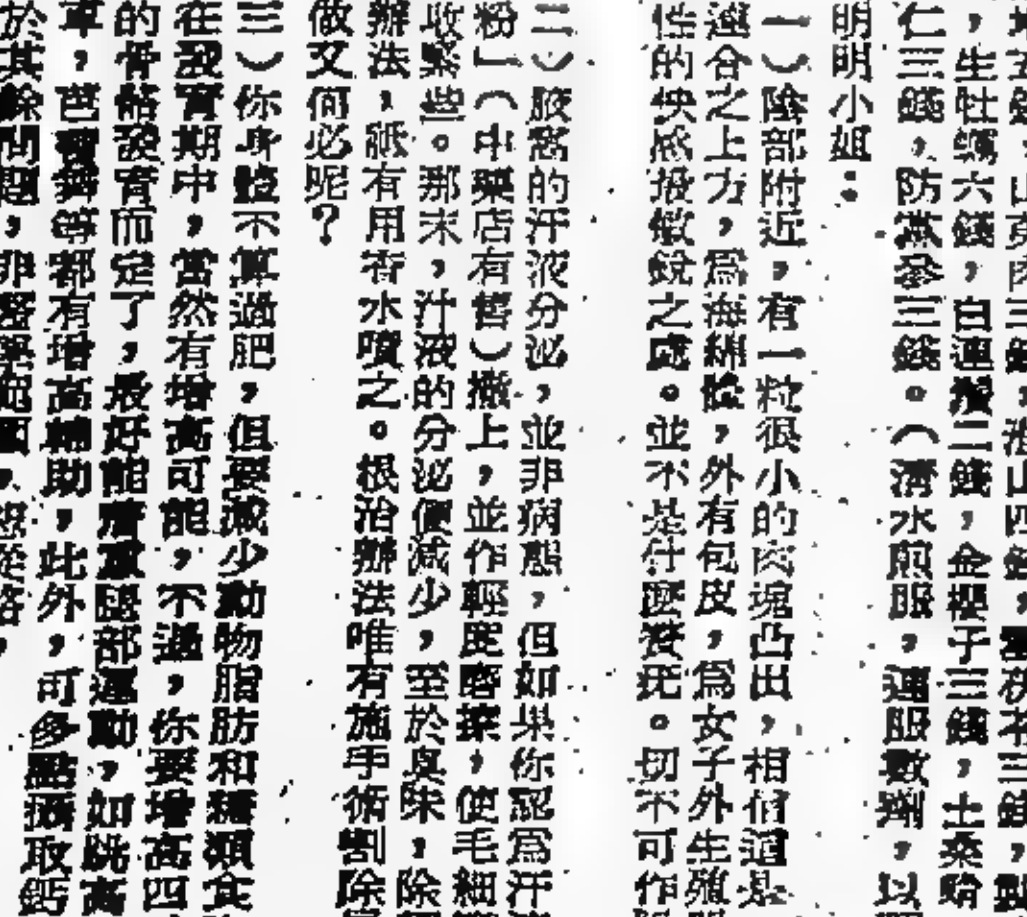 山萸肉三錢,淮山四錢,
,生牡蠣六錢,白連鬚二錢,金櫻子三錢,土桑
仁三錢,防黨參三錢。(清水煎服,連服數劑,以
明明小姐:
一)陰部附近,有一粒很小的肉塊凸出,相信這是
連合之上方,爲海綿體,外有包皮,爲女子外生殖
性的快感最敏銳之處。並不是什麼瘡疣。切不可作
二)腋窩的汗液分泌,並非病態,但如果你認爲汗
粉」(中藥店有售)撒上,並作輕度磨擦,使毛細
收緊些。那末,汁液的分泌便減少,至於臭味,除
辦法,祇有用香水噴之。根治辦法唯有施手術割除
做又何必呢?
三)你身體不算過肥,但要減少動物脂肪和糖類食
在發育期中,當然有增高可能,不過,你要增高四
的骨骼發育而定了,最好能着重腿部運動,如跳高
車,芭蕾舞等都有增高輔助,此外,可多點攝取鈣
於其餘問題,